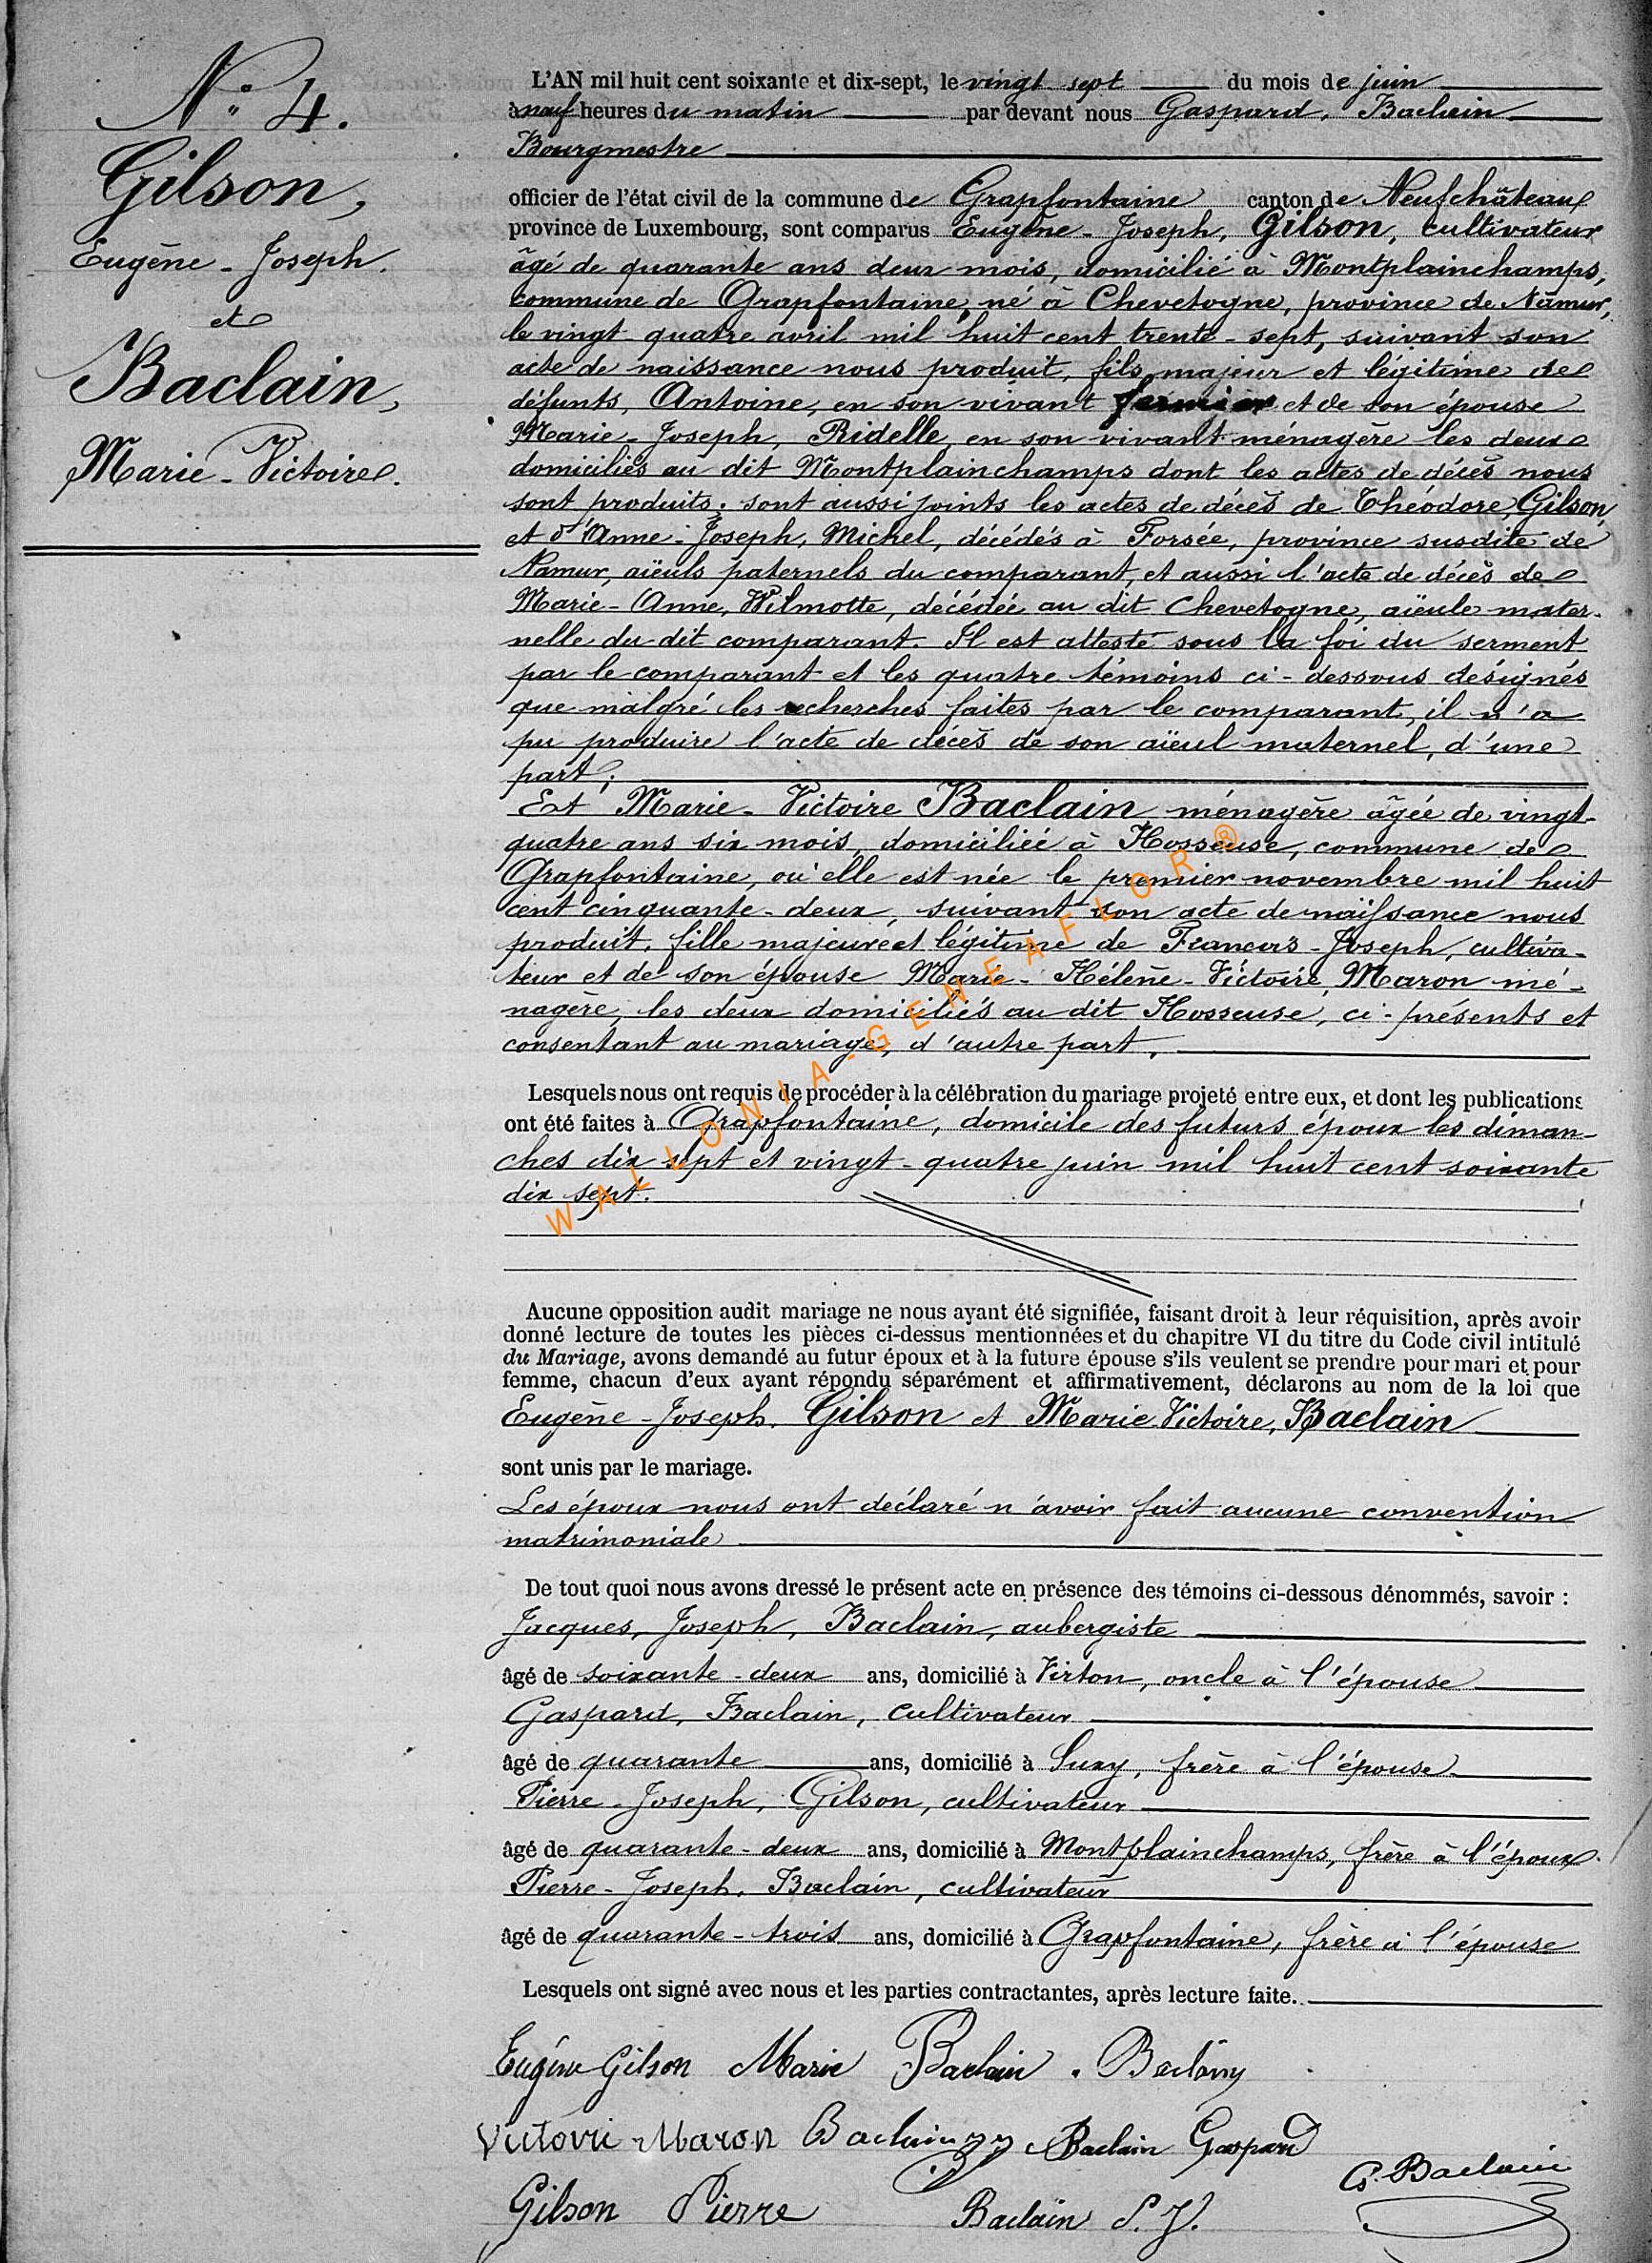 N° 4.
Gilson,
Eugène - Joseph.
et
Baclain,
Marie - Victoire.
L'AN mil huit cent soixante et dix-sept, le vingt sept du mois de juin
à neuf heures du matin par devant nous Gaspard, Baclain
Bourgmestre
officier de l'état civil de la commune de Grapfontaine canton de Neufchâteau
province de Luxembourg, sont comparus Eugène - Joseph, Gilson, cultivateur
âgé de quarante ans deux mois, domicilié à Montplainchamps,
commune de Grapfontaine, né à Chevetogne, province de Namur,
le vingt quatre avril mil huit cent trente - sept, suivant son
acte de naissance nous produit, fils majeur et légitime de
défunts, Antoine, en son vivant fermier et de son épouse
Marie - Joseph, Ridelle, en son vivant ménagère les deux
domiciliés au dit Montplainchamps dont les actes de décès nous
sont produits; sont aussi joints les actes de décès de Théodore, Gilson,
et d'Anne - Joseph, Michel, décédés à Forsée, province susdite de
Namur, aïeuls paternels du comparant, et aussi l'acte de décès de
Marie - Anne, Wilmotte, décédée au dit Chevetogne, aïeule mater-
nelle du dit comparant. Il est attesté sous la foi du serment
par le comparant et les quatre témoins ci - dessous désignés
que malgré les recherches faites par le comparant, il n'a
pu produire l'acte de décès de son aïeul maternel, d'une
part;
Et Marie - Victoire Baclain ménagère âgée de vingt-
quatre ans six mois, domiciliée à Hosseuse, commune de
Grapfontaine, où elle est née le premier novembre mil huit
cent cinquante - deux, suivant son acte de naissance nous
produit, fille majeure et légitime de François - Joseph, cultiva-
teur et de son épouse Marie - Hélène - Victoire, Maron mé-
nagère, les deux domiciliés au dit Hosseuse, ci - présents et
consentant au mariage, d'autre part.
Lesquels nous ont requis de procéder à la célébration du mariage projeté entre eux, et dont les publications
ont été faites à Grapfontaine, domicile des futurs époux les diman-
ches dix sept et vingt - quatre juin mil huit cent soixante
dix sept.
WALLONIA-GENEAFLOR®
Aucune opposition audit mariage ne nous ayant été signifiée, faisant droit à leur réquisition, après avoir
donné lecture de toutes les pièces ci-dessus mentionnées et du chapitre VI du titre du Code civil intitulé
du Mariage, avons demandé au futur époux et à la future épouse s'ils veulent se prendre pour mari et pour
femme, chacun d'eux ayant répondu séparément et affirmativement, déclarons au nom de la loi que
Eugène - Joseph, Gilson et Marie Victoire, Baclain
sont unis par le mariage.
Les époux nous ont déclaré n'avoir fait aucune convention
matrimoniale
De tout quoi nous avons dressé le présent acte en présence des témoins ci-dessous dénommés, savoir :
Jacques, Joseph, Baclain, aubergiste
âgé de soixante - deux ans, domicilié à Virton, oncle à l'épouse
Gaspard, Baclain, cultivateur
âgé de quarante ans, domicilié à Suxy, frère à l'épouse
Pierre - Joseph, Gilson, cultivateur
âgé de quarante - deux ans, domicilié à Montplainchamps, frère à l'époux.
Pierre - Joseph, Baclain, cultivateur
âgé de quarante - trois ans, domicilié à Grapfontaine, frère à l'épouse
Lesquels ont signé avec nous et les parties contractantes, après lecture faite.
Eugène Gilson Marie Baclain
Maron Baclain Baclain Gaspard
G. Baclain
Gilson Pierre Baclain P. J.